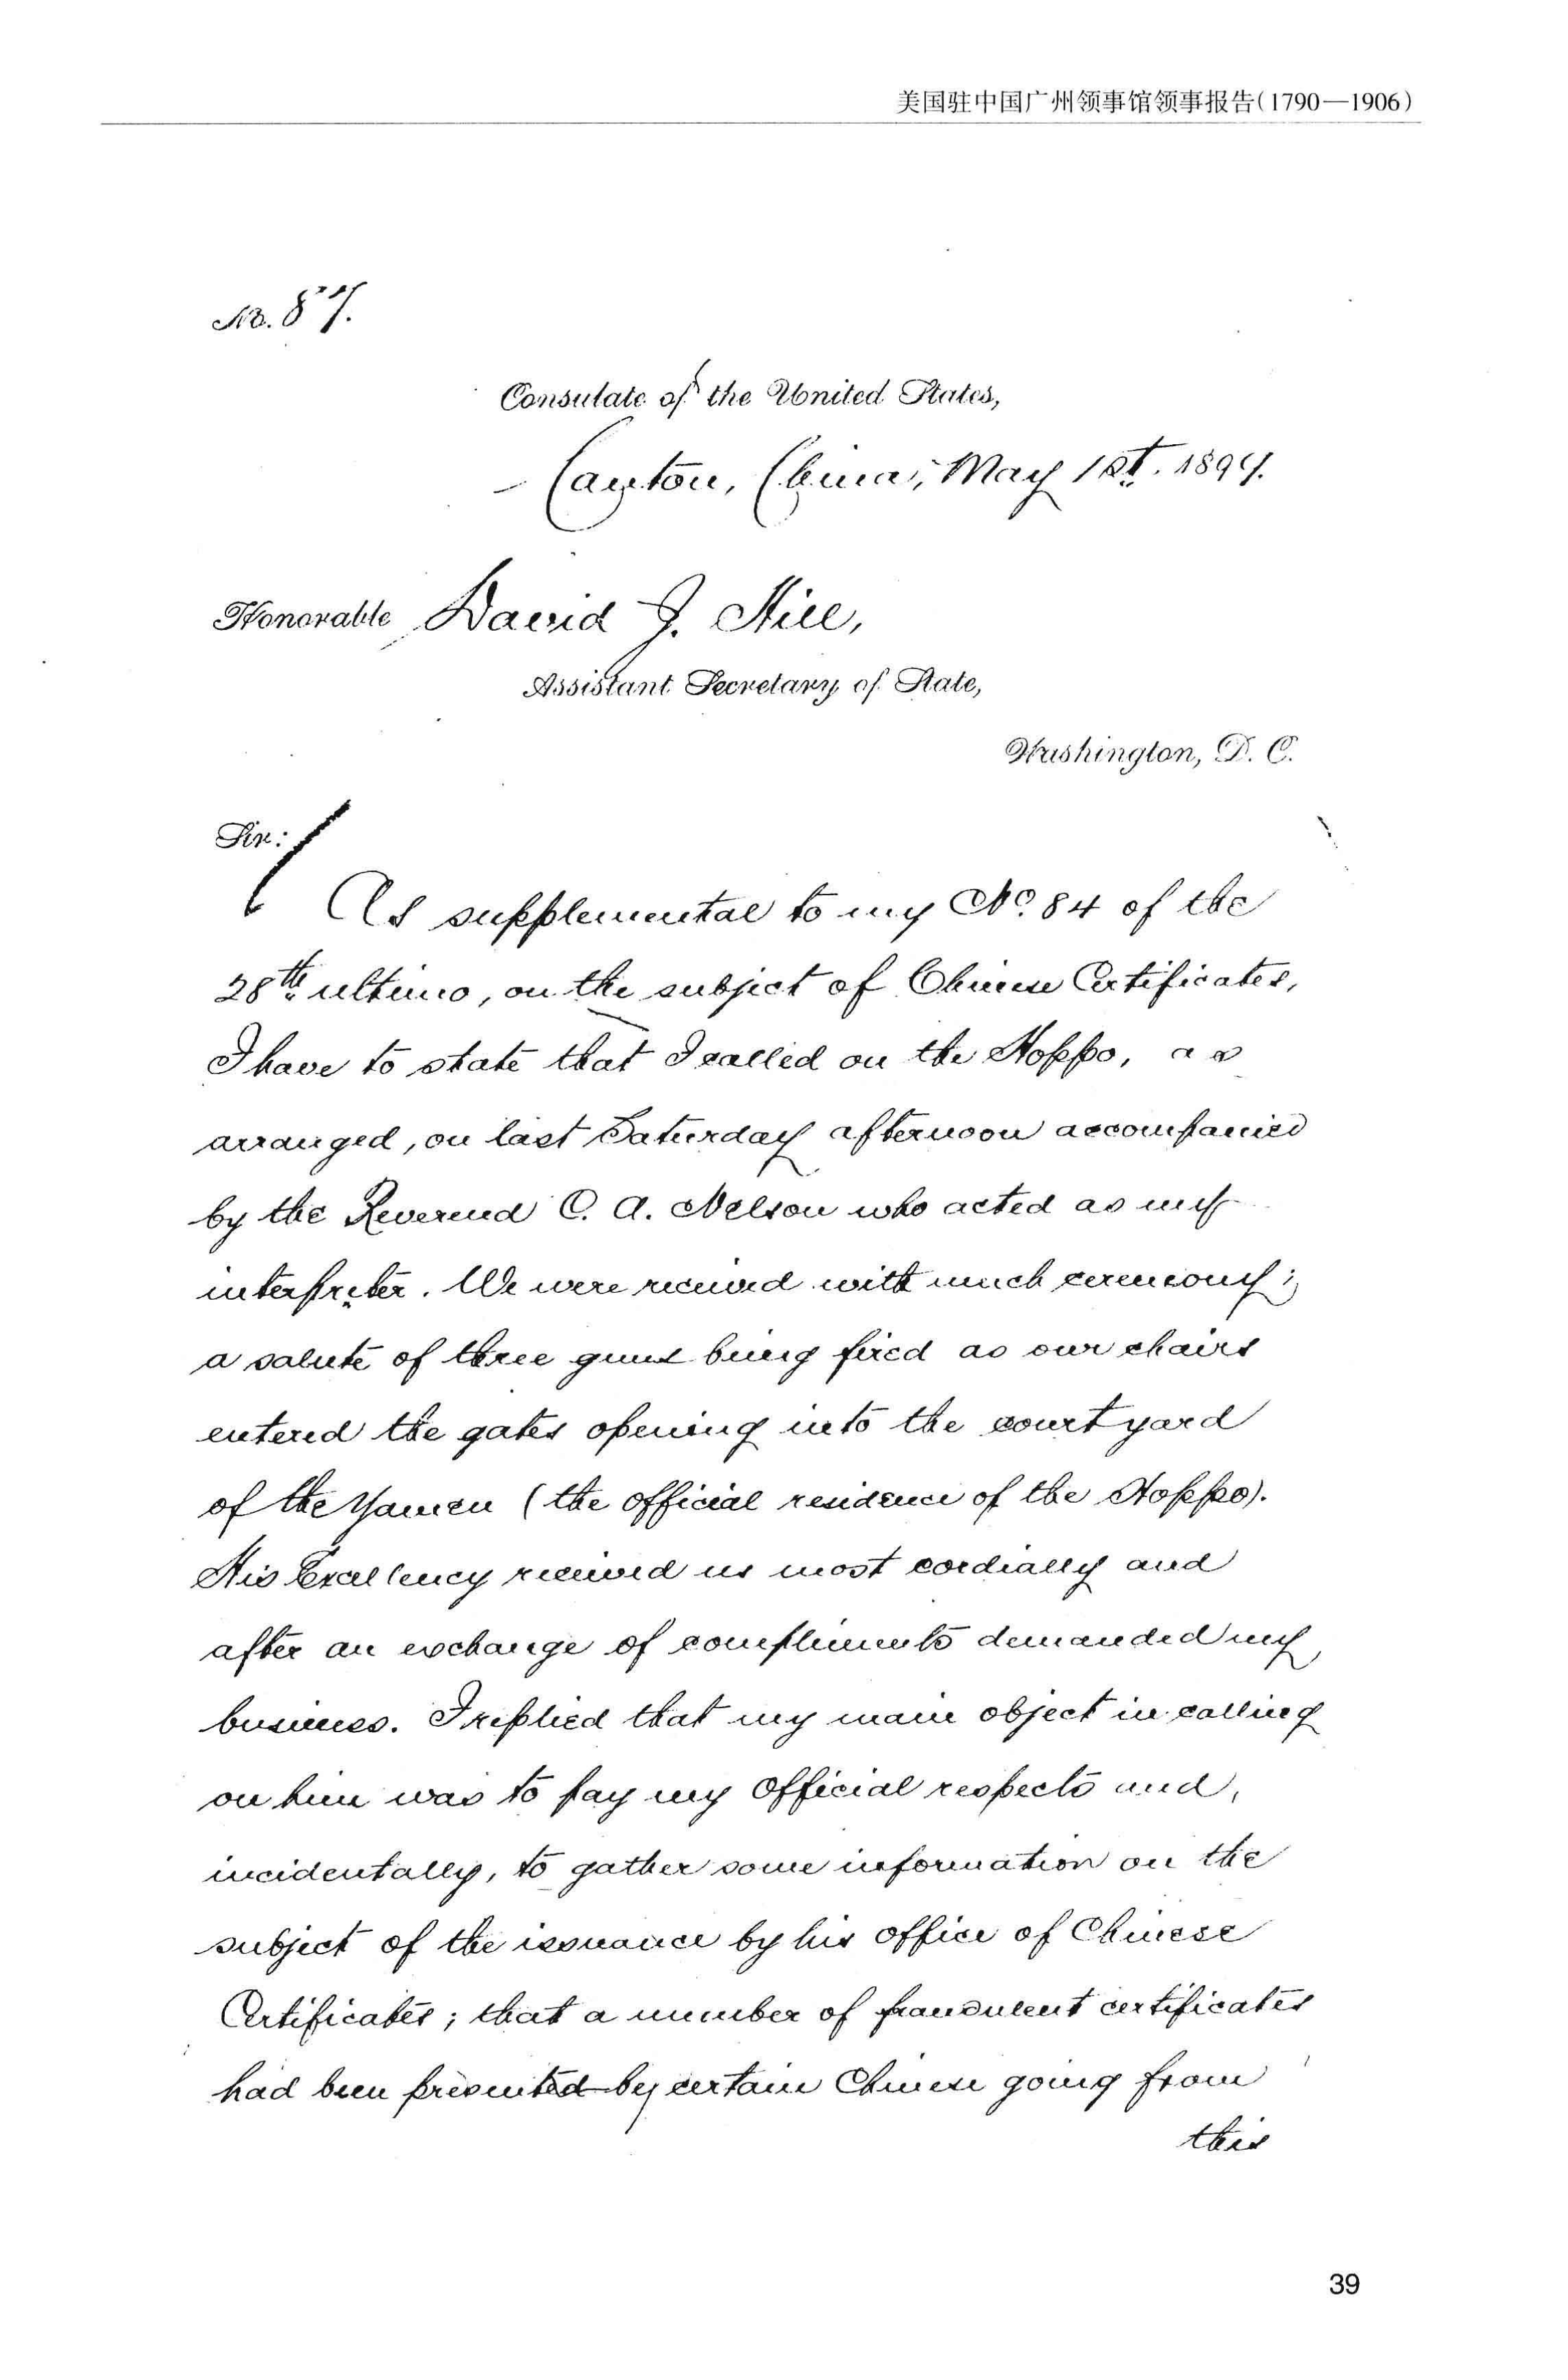 美国驻中国广州领事馆领事报告(1790—1906)
No. 87.
Consulate of the United States,
Canton, China, May 1st. 1899.
Honorable David J. Hill,
Assistant Secretary of State,
Washington, D. C.
Sir:
As supplemental to my No. 84 of the
28th ultimo, on the subject of Chinese Certificates,
I have to state that I called on the Hoppo, as
arranged, on last Saturday afternoon accompanied
by the Reverend C. A. Nelson who acted as my
interpreter. We were received with much ceremony;
a salute of three guns being fired as our chairs
entered the gates opening into the court yard
of the Yamen (the official residence of the Hoppo).
His Excellency received us most cordially and
after an exchange of compliments demanded my
business. I replied that my main object in calling
on him was to pay my official respects and,
incidentally, to gather some information on the
subject of the issuance by his office of Chinese
Certificates; that a number of fraudulent certificates
had been presented by certain Chinese going from
this
39